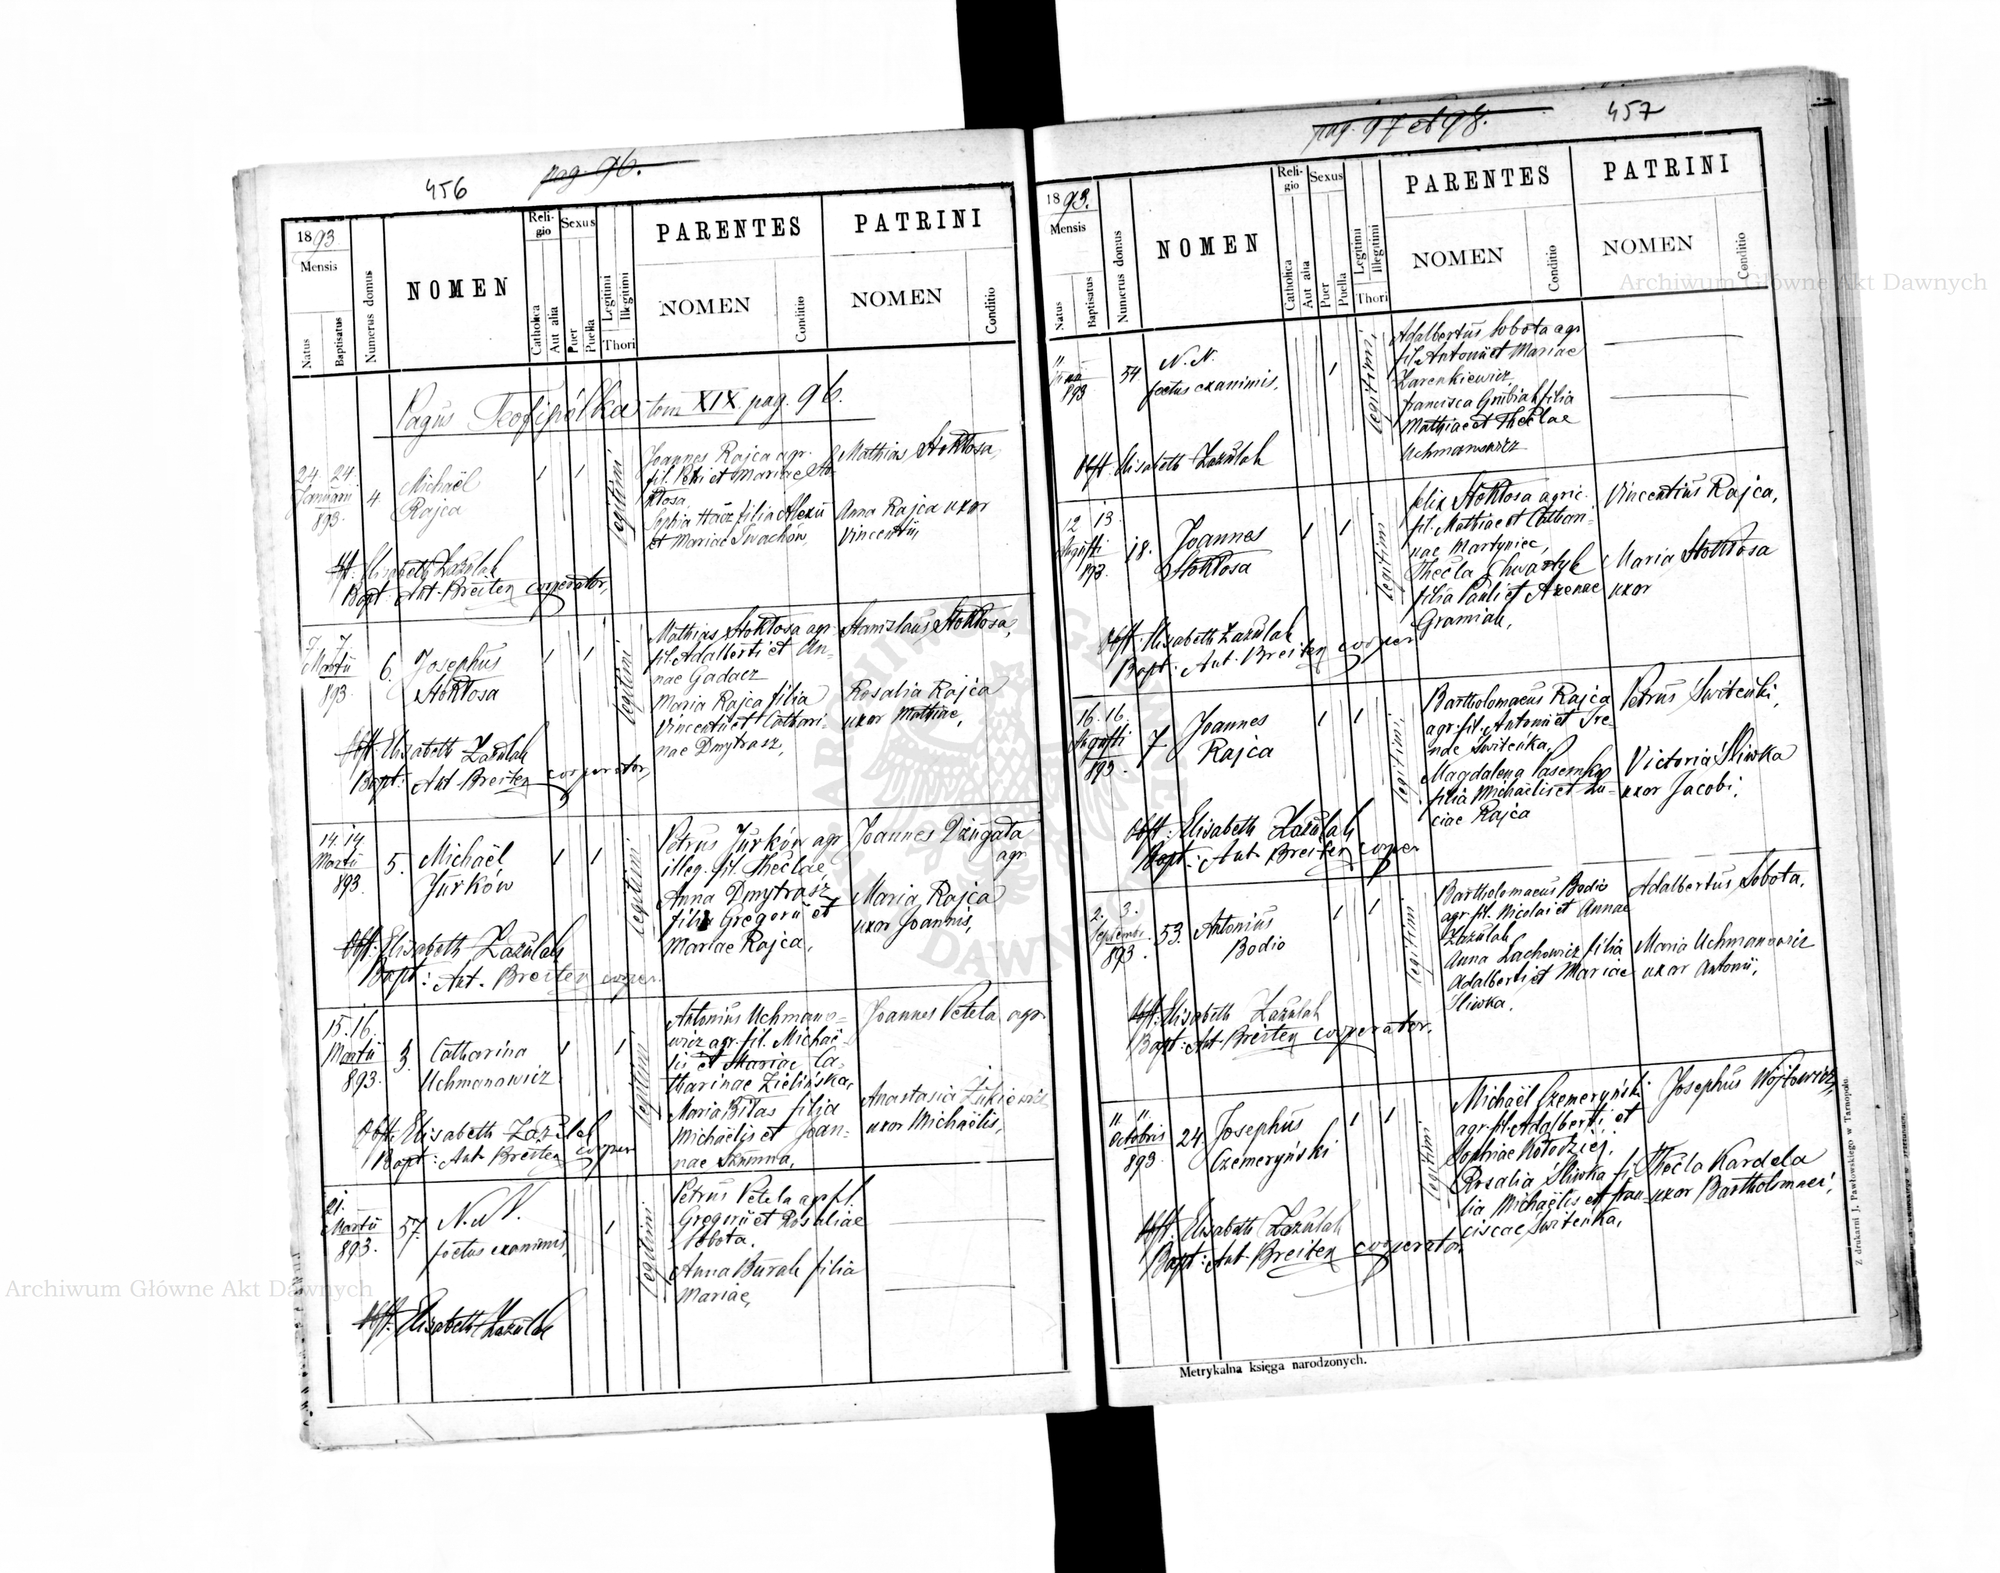 456
pag. 96.
1893
Mensis
Natus
Baptisatus
Numerus domus
NOMEN
Religio
Catholica
Aut alia
Sexus
Puer
Puella
Legitimi
Illegitimi
Thori
PARENTES
NOMEN
Conditio
PATRINI
NOMEN
Conditio
Pagus Teofipólka tom XIX pag. 96.
24 24
Januarii
893.
4.
Michaël
Rajca
legitimi
Joannes Rajca agr.
fil. Petri et Mariae Sto
kłosa
Sophia filia Alexii
et Mariae Iwachów
Mathias Stokłosa,
Anna Rajca uxor
Vincentii,
Obst. Elisabeth Lazulak
Bapt. Ant. Breiten cooperator,
7. 7.
Martii
893.
6.
Josephus
Stokłosa
legitimi
Mathias Stokłosa agr.
fil. Adalberti et An-
nae Gadacz
Maria Rajca filia
Vincentii et Cathari-
nae Dmytrasz,
Stanislaus Stokłosa,
Rosalia Rajca
uxor Mathiae,
Obst. Elisabeth Lazulak
Bapt: Ant. Breiten cooperator,
14. 14.
Martii
893.
5.
Michaël
Jurków
legitimi
Petrus Jurków agr.
illeg. fil. Theclae,
Anna Dmytrasz
filia Gregorii et
Mariae Rajca,
Joannes Dżugała
agr.
Maria Rajca
uxor Joannis,
Obst: Elisabeth Lazulak
Bapt: Ant. Breiten cooper.
15. 16.
Martii
893.
3.
Catharina
Uchmanowicz
legitimi
Antonius Uchmano-
wicz agr. fil. Michaë-
lis et Mariae Ca-
tharinae Zielińska,
Maria Bilas filia
Michaëlis et Joan-
nae Szumna,
Joannes Petela agr.
Anastasia
uxor Michaëlis,
Obst: Elisabeth Lazulak
Bapt: Ant. Breiten cooper
21.
Martii
893.
57.
N. N.
foetus exanimis,
legitimi
Petrus Petela agr. fil.
Gregorii et Rosaliae
Sobota.
Anna Burak filia
Mariae,
Obst. Elisabeth Lazulak
457
pag. 97 et 98.
1893.
Mensis
Natus
Baptisatus
Numerus domus
NOMEN
Religio
Catholica
Aut alia
Sexus
Puer
Puella
Legitimi
Illegitimi
Thori
PARENTES
NOMEN
Conditio
PATRINI
NOMEN
Conditio
11
893
54
N. N.
foetus exanimis,
legitimi
Adalbertus Sobota agr.
fil. Antonii et Mariae
Zarenkiewicz
Francisca Grubiak filia
Mathiae et Theclae
Uchmanowicz
Obst. Elisabeth Lazulak
12 13.
Augusti
893.
18.
Joannes
Stokłosa
legitimi
Felix Stokłosa agric.
fil. Mathiae et Cathari-
nae Martyniec,
Thecla Chwastyk
filia Pauli et Axenae
Gramiak,
Vincentius Rajca,
Maria Stokłosa
uxor
Obst: Elisabeth Lazulak
Bapt: Ant. Breiten cooper
16. 16.
Augusti
893.
7.
Joannes
Rajca
legitimi
Bartholomaeus Rajca
agr. fil. Antonii et Ire-
nae Switeńka,
Magdalena Pasemko
filia Michaëlis et Lu-
ciae Rajca
Petrus Switeńki,
Victoria Śliwka
uxor Jacobi,
Obst: Elisabeth Lazulak
Bapt: Ant. Breiten cooper
2. 3.
Septembr.
893.
53.
Antonius
Bodio
legitimi
Bartholomaeus Bodio
agr. fil. Nicolai et Annae
Lazulak
Anna Lachowicz filia
Adalberti et Mariae
Sliwka,
Adalbertus Sobota,
Maria Uchmanowicz
uxor Antonii,
Obst: Elisabeth Lazulak
Bapt: Ant. Breiten cooperator.
11 11
Octobris
893.
24
Josephus
Czemeryński
legitimi
Michaël Czemeryński
agr. fil. Adalberti et
Sophiae Kołodziej,
Rosalia Śliwka fi-
lia Michaëlis et Fran-
ciscae Switeńka,
Josephus Wojtowicz,
Thecla Kardela
uxor Bartholomaei,
Obst: Elisabeth Lazulak
Bapt: Ant. Breiten cooperator,
Metrykalna księga narodzonych.
Z drukarni J. Pawłowskiego w Tarnopolu.
Archiwum Główne Akt Dawnych
Archiwum Główne Akt Dawnych